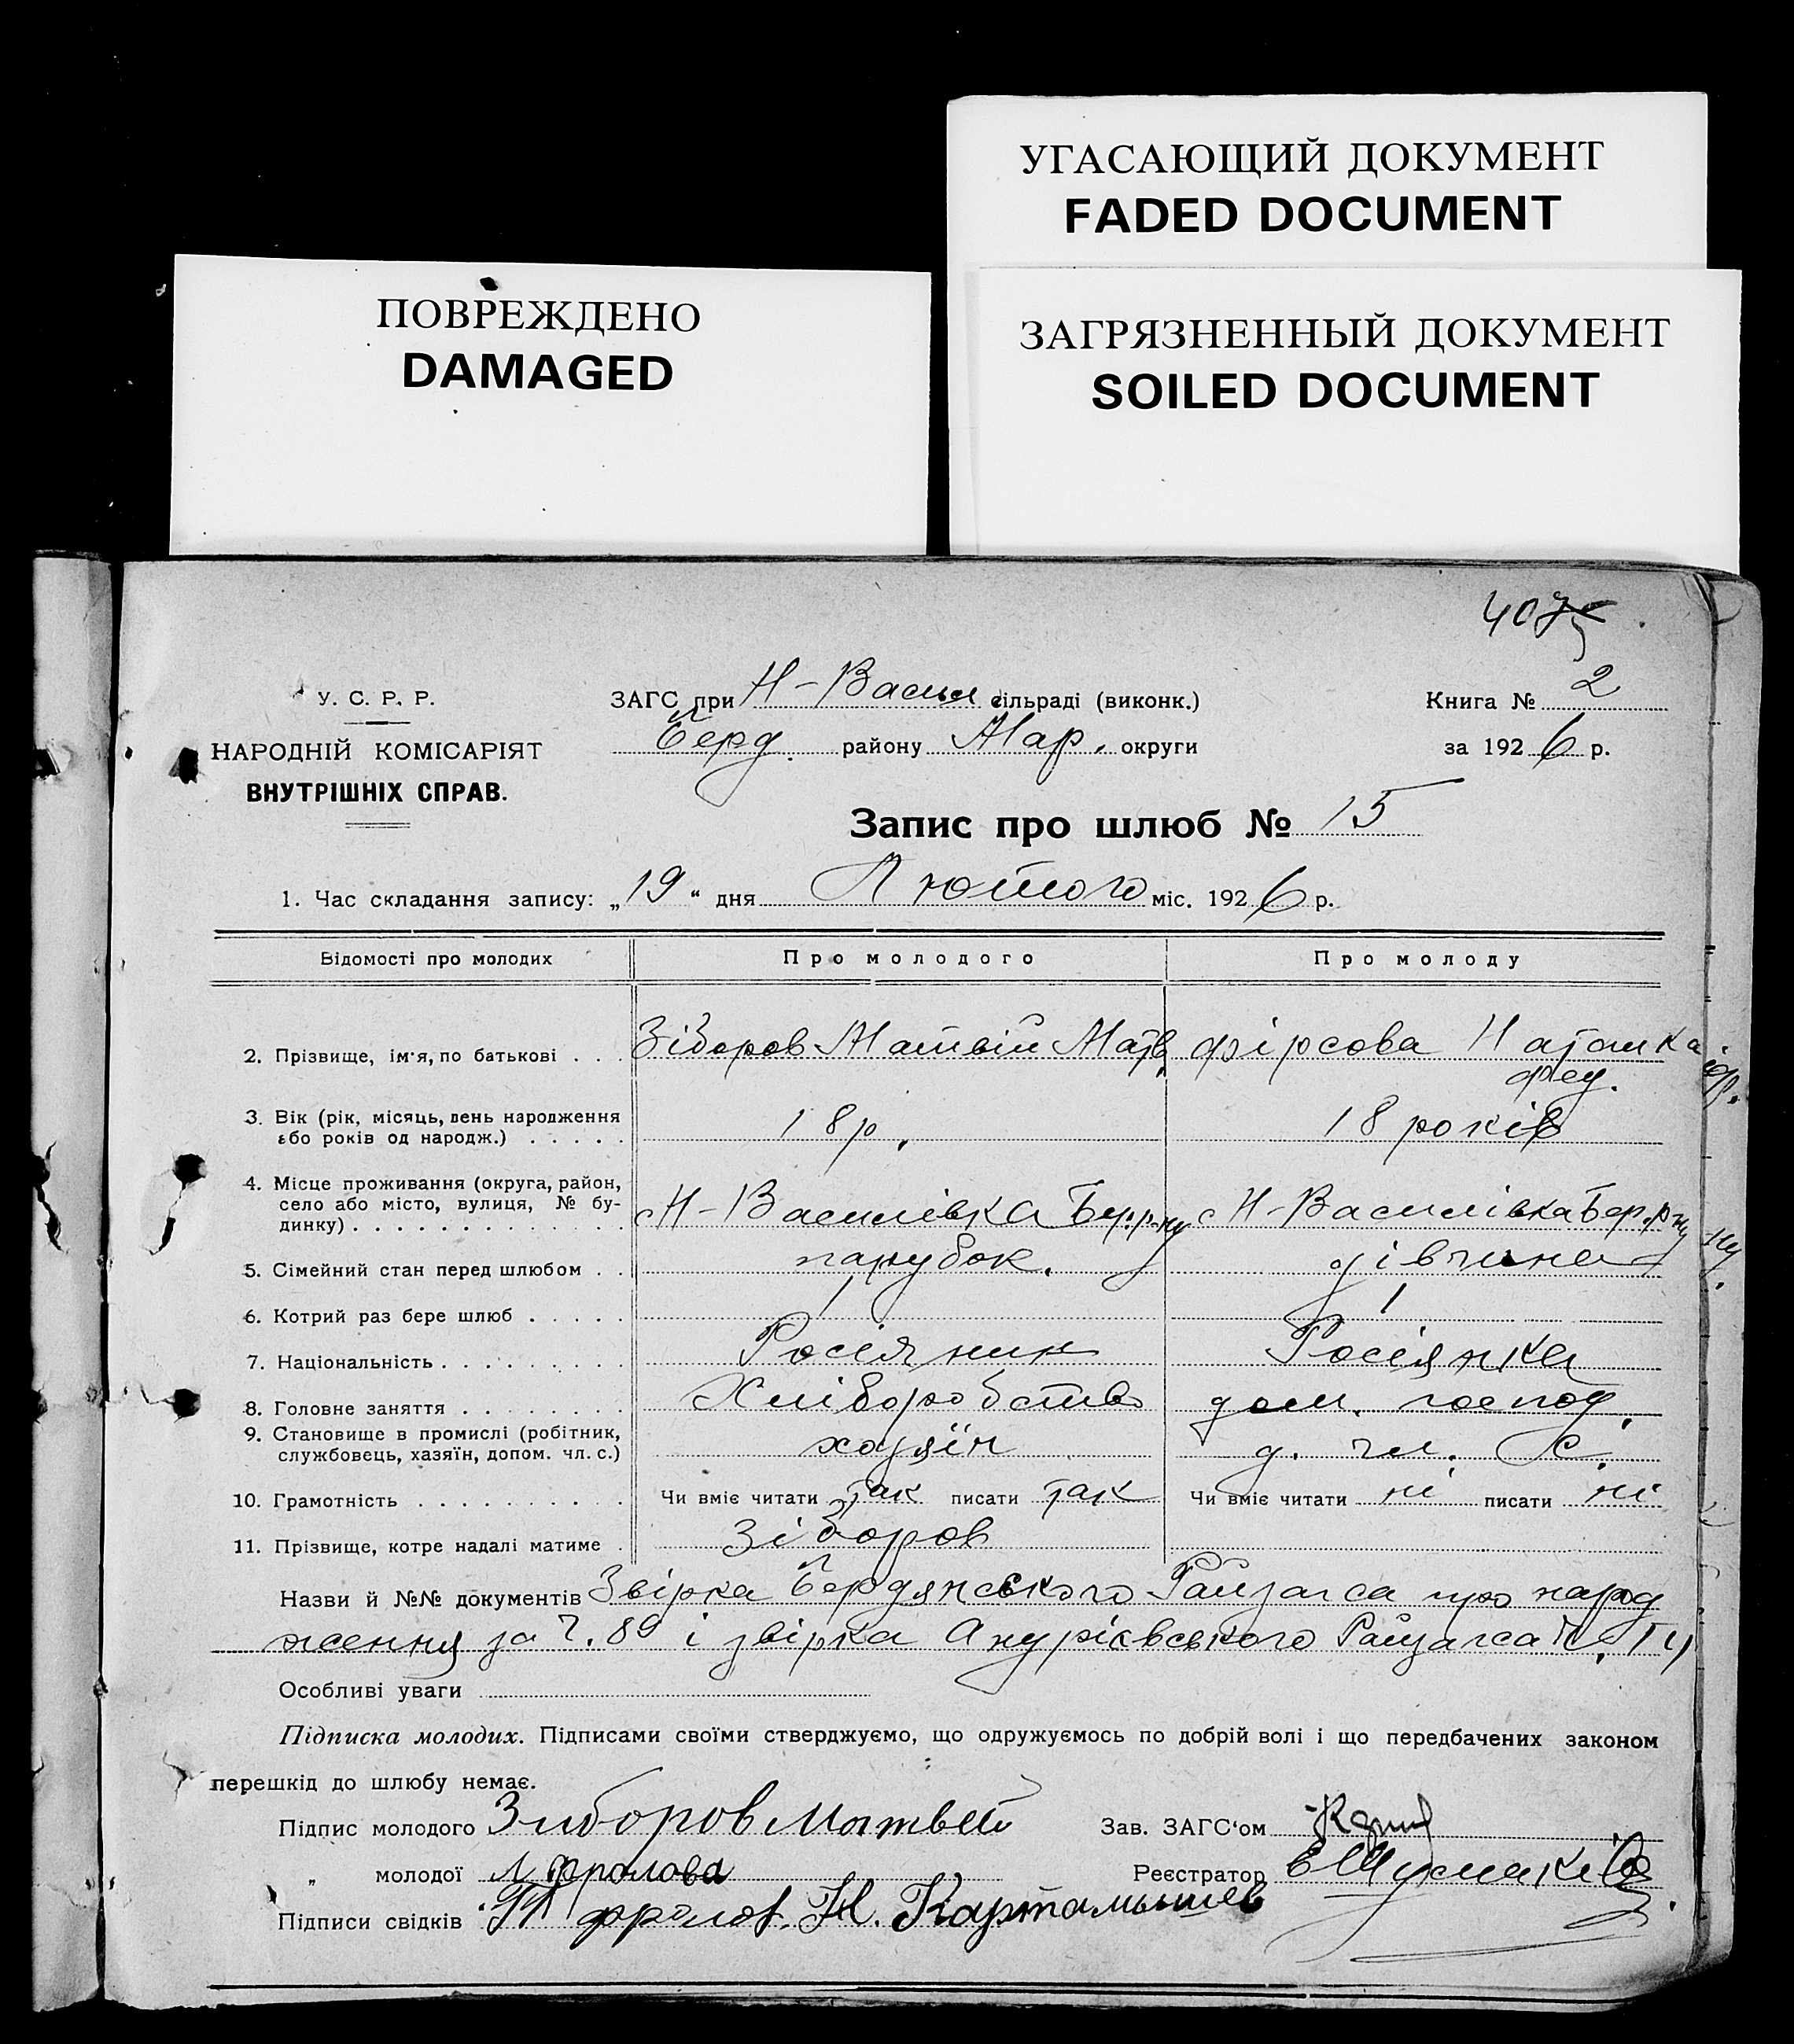 УГАСАЮЩИЙ ДОКУМЕНТ
FADED DOCUMENT
ПОВРЕЖДЕНО
DAMAGED
ЗАГРЯЗНЕННЫЙ ДОКУМЕНТ
SOILED DOCUMENT
407
У. С. Р. Р.
НАРОДНІЙ КОМІСАРІЯТ
ВНУТРІШНІХ СПРАВ.
ЗАГС при Н-Васил сільраді (виконк.)
Берд. району Мар. округи
Книга № 2
за 1926 р.
Запис про шлюб № 15
1. Час складання запису: „19“ дня Лютого міс. 1926 р.
Відомості про молодих Про молодого Про молоду
2. Прізвище, ім'я, по батькові . . . Зіборов Матвій Матв. Фірсова Наташка
Фед.
3. Вік (рік, місяць, день народження
або років од народж.) . . . . . 18 р. 18 років
4. Місце проживання (округа, район,
село або місто, вулиця, № бу-
динку) . . . . . . . . . . . . с Н-Василівка Бер. р-ну с Н-Василівка Бер. р-ну
5. Сімейний стан перед шлюбом . . парубок. дівчина
6. Котрий раз бере шлюб . . . . . 1 1
7. Національність . . . . . . . . . Росіянин Росіянка
8. Головне заняття . . . . . . . . Хліборобство дом. господ.
9. Становище в промислі (робітник,
службовець, хазяїн, допом. чл. с.) хазяїн д. чл. с.
10. Грамотність . . . . . . . . . . Чи вміє читати так писати так Чи вміє читати ні писати ні
11. Прізвище, котре надалі матиме . Зіборов
Назви й №№ документів Звірка Бердянського Райзагса про народ
ження за Ч. 89 і звірка Андріївського Райзагса
Особливі уваги
Підписка молодих. Підписами своїми стверджуємо, що одружуємось по добрій волі і що передбачених законом
перешкід до шлюбу немає.
Підпис молодого Зиборов Матвей Зав. ЗАГС'ом
„ молодої Фролова Реєстратор
Підписи свідків Фролов. Н. Картамышев